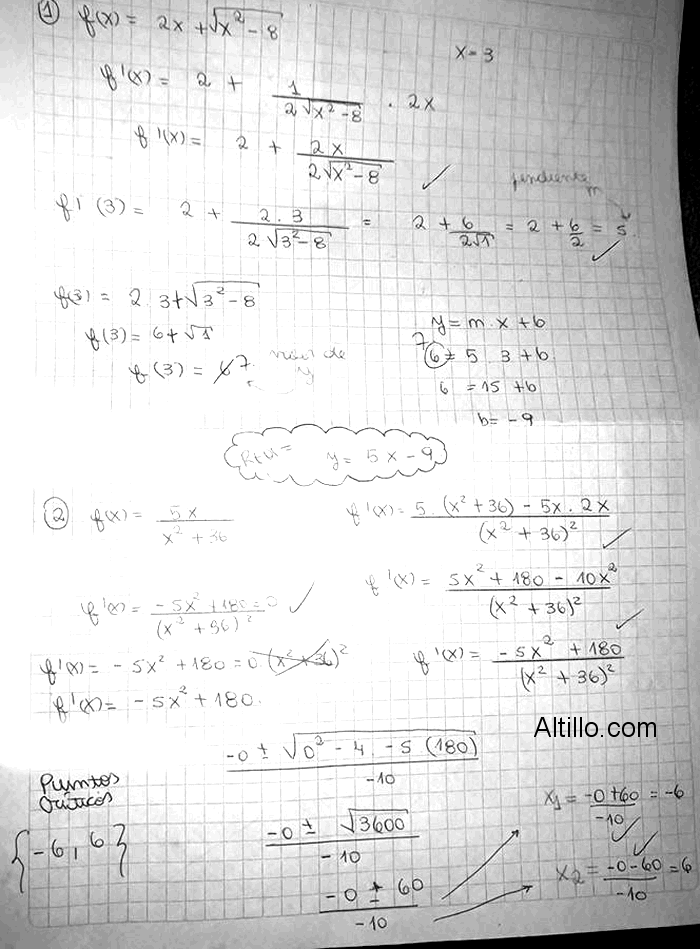 ① f(x) = 2x + √(x² − 8)
x = 3
f'(x) = 2 + 1/(2√(x² − 8)) · 2x
f'(x) = 2 + 2x/(2√(x² − 8)) ✓
pendiente m
f'(3) = 2 + (2 . 3)/(2√(3² − 8)) = 2 + 6/(2√1) = 2 + 6/2 = 5. ✓
f(3) = 2 . 3 + √(3² − 8)
f(3) = 6 + √1
f(3) = 6 7.
de y
y = m . x + b
7
6 = 5 . 3 + b
6 = 15 + b
b = − 9
y = 5x − 9
② f(x) = 5x/(x² + 36)
f'(x) = (5 . (x² + 36) − 5x . 2x)/(x² + 36)² ✓
f'(x) = (5x² + 180 − 10x²)/(x² + 36)²
f'(x) = (−5x² + 180)/(x² + 36)² ✓
f'(x) = (−5x² + 180 = 0)/(x² + 36)² ✓
f'(x) = − 5x² + 180 = 0 . (x² + 36)²
f'(x) = − 5x² + 180.
Altillo.com
(−0 ± √(0² − 4 . −5 (180)))/−10
(−0 ± √3600)/−10
(−0 ± 60)/−10
x₁ = (−0 + 60)/−10 = −6 ✓
x₂ = (−0 − 60)/−10 = 6 ✓
Puntos
Críticos
{−6, 6}